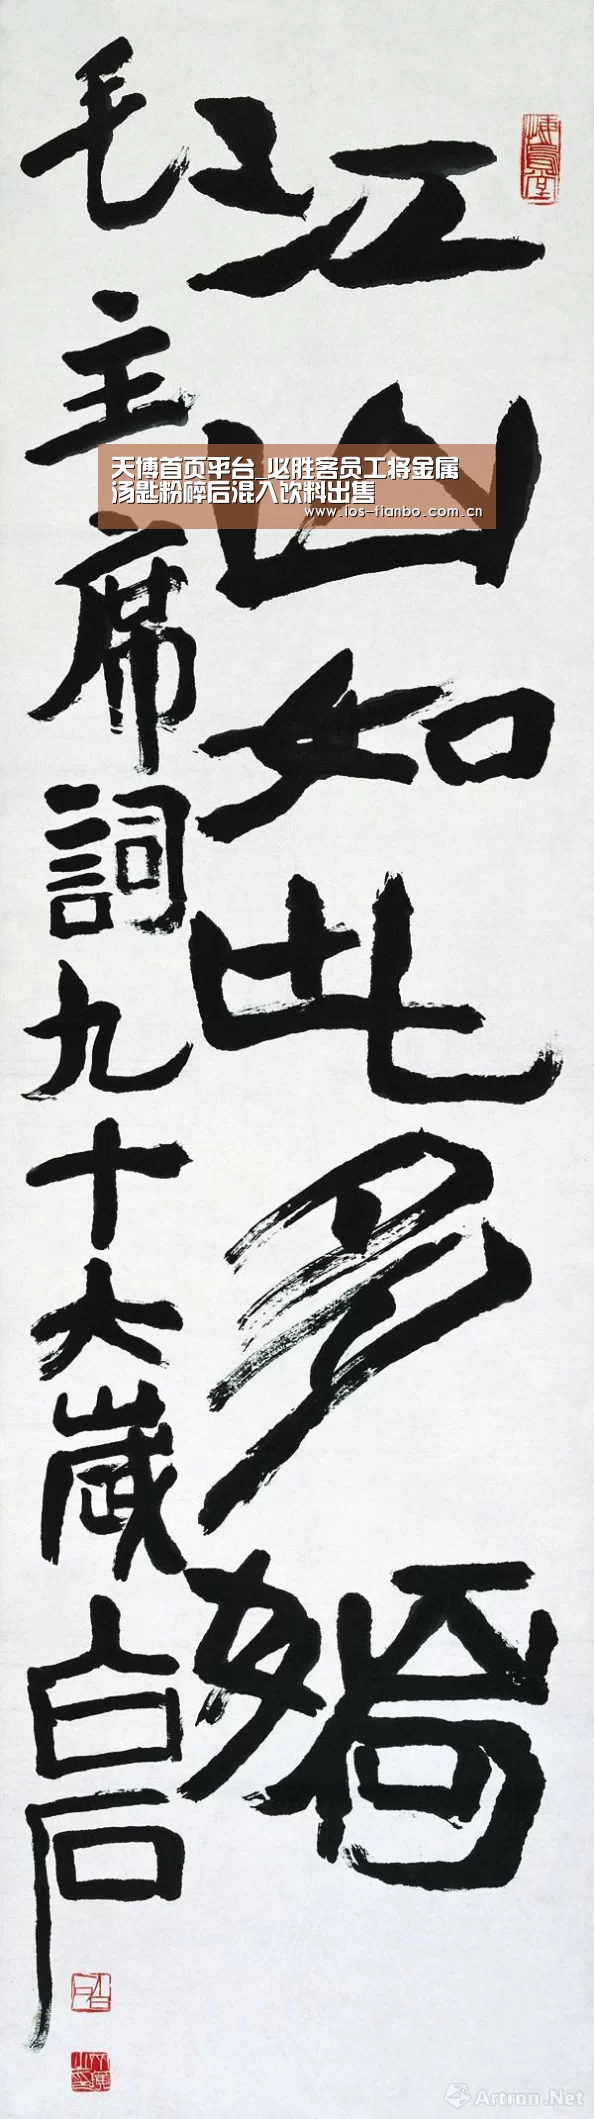 江山如此多嬌
毛主席詞九十六歲白石
天博首页平台_必胜客员工将金属
汤匙粉碎后混入饮料出售
www.ios-tianbo.com.cn
Artron.Net